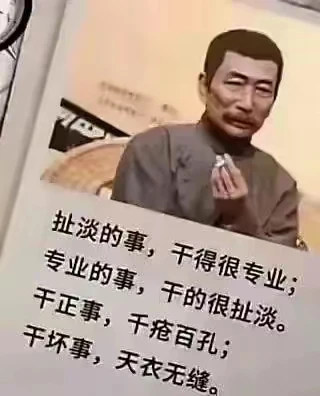 扯淡的事，干得很专业；
专业的事，干的很扯淡。
干正事，千疮百孔；
干坏事，天衣无缝。